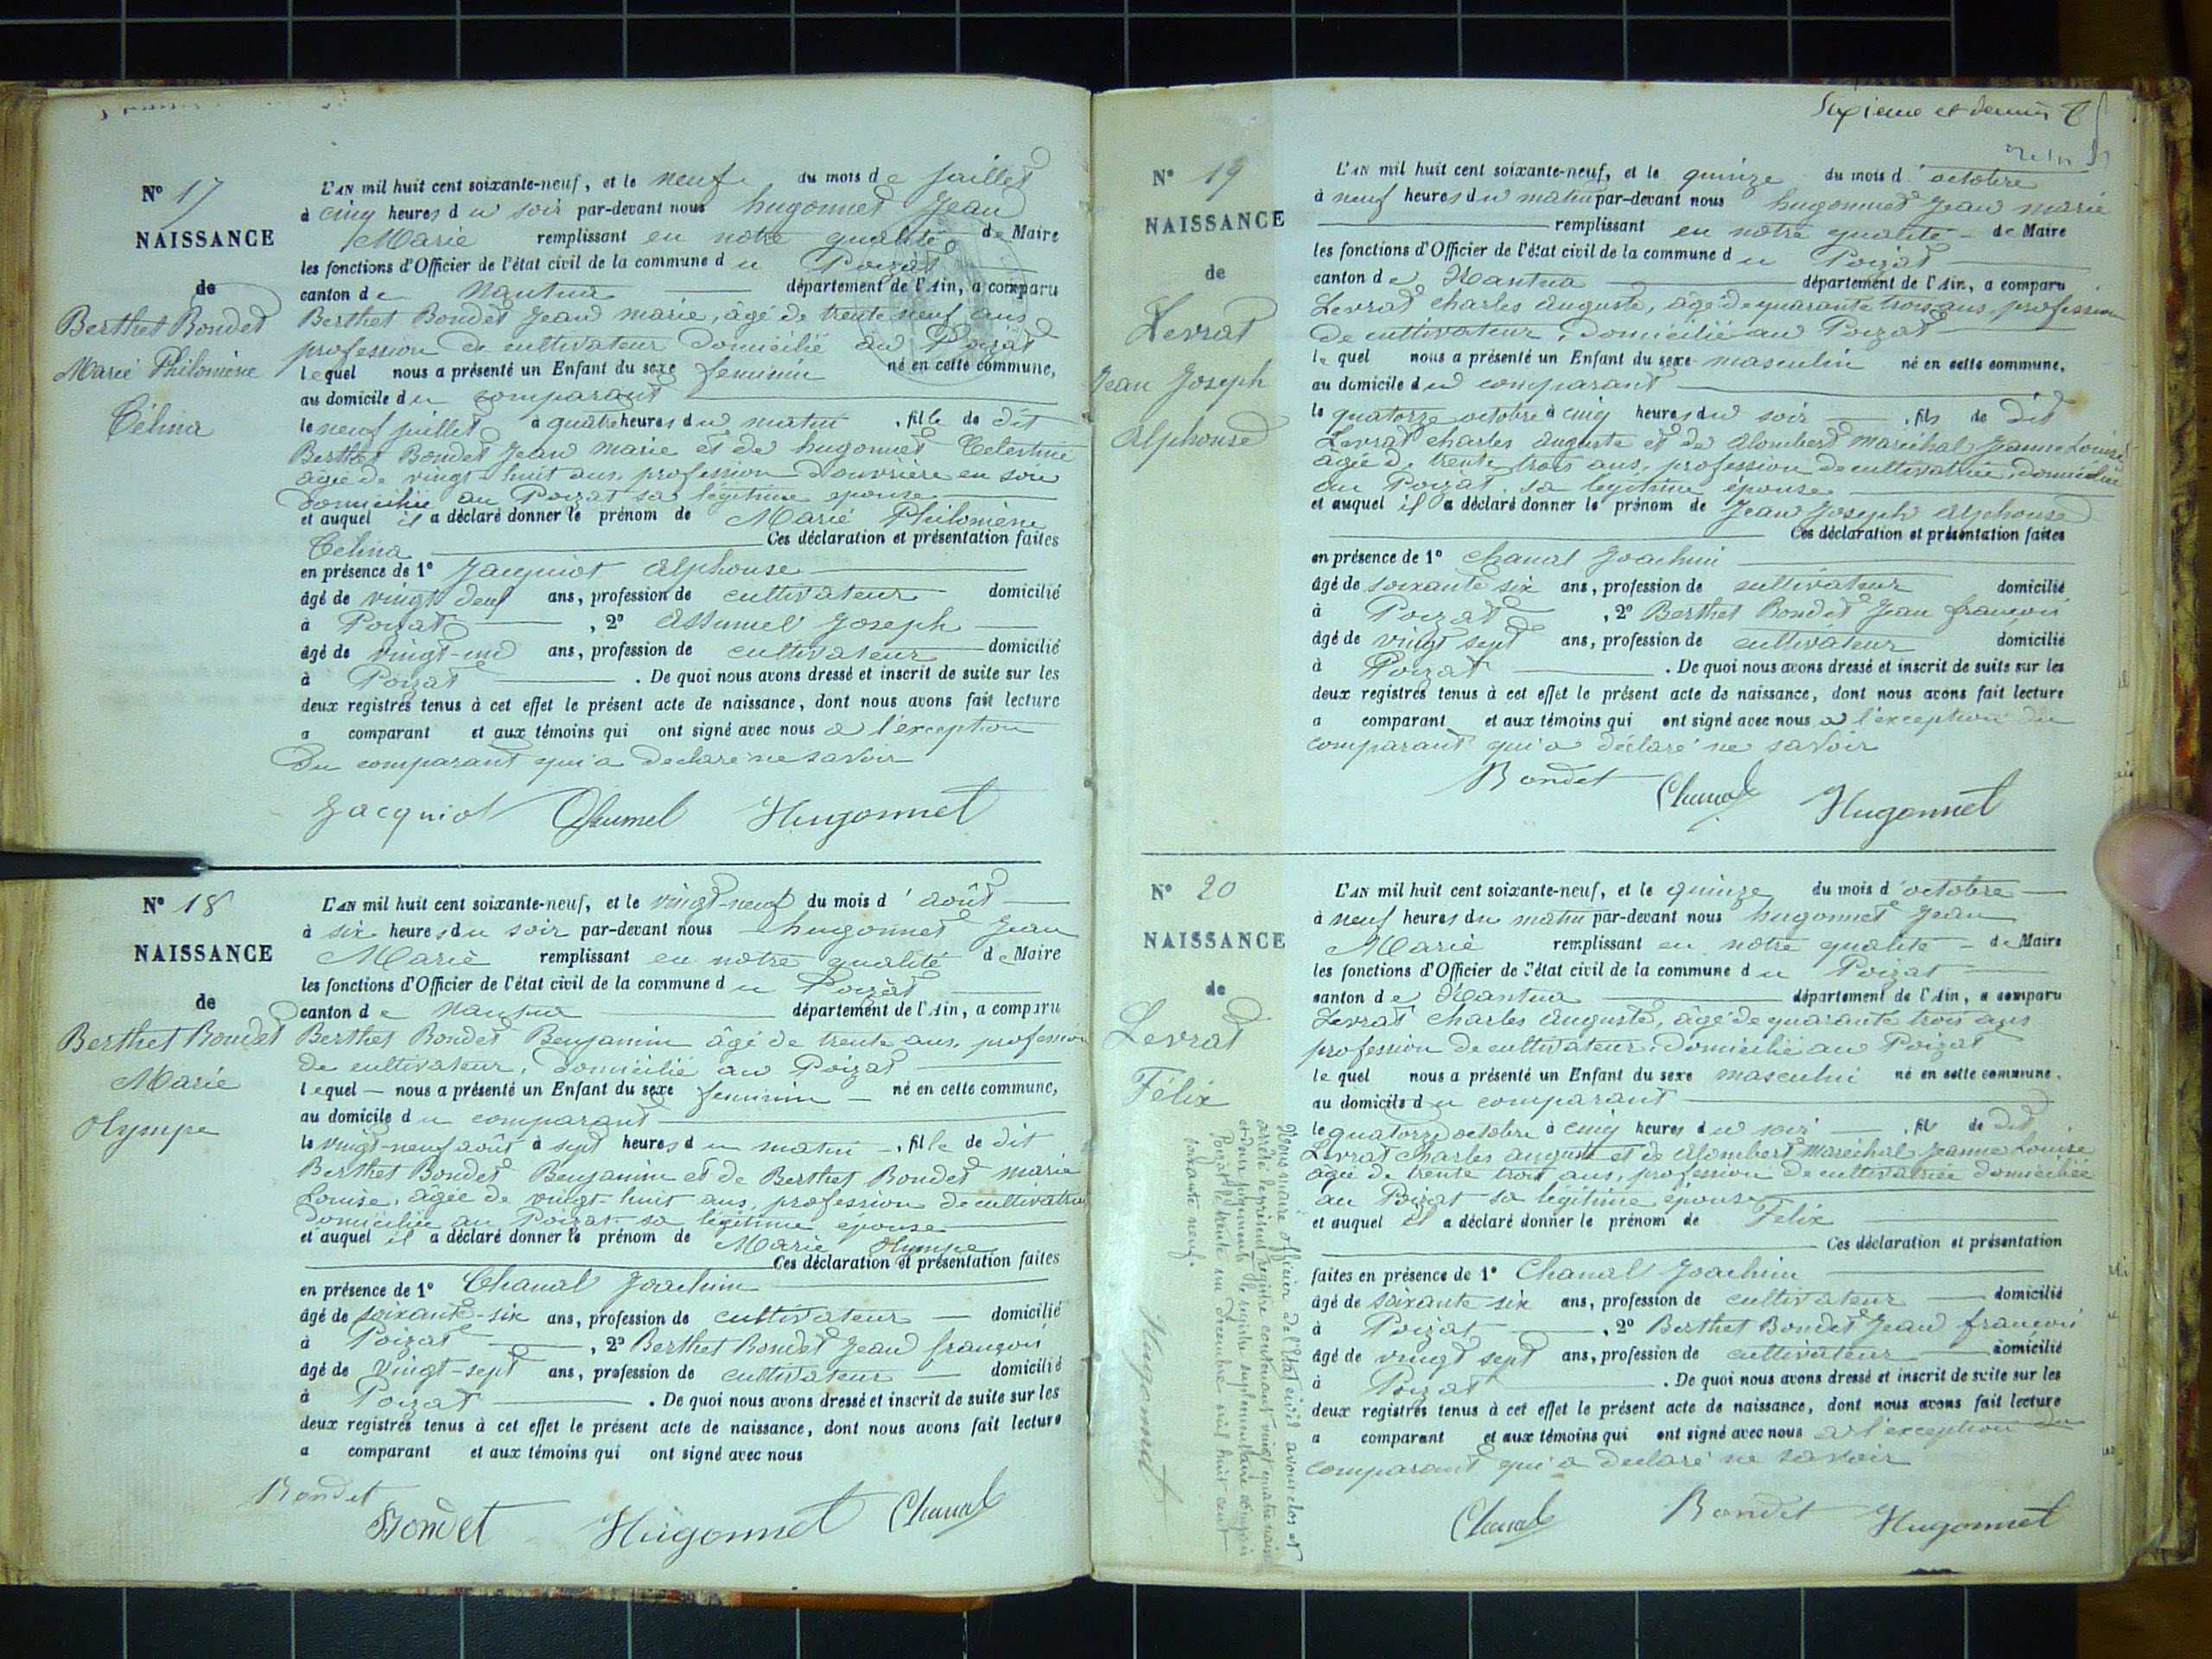 N° 17
NAISSANCE
de
Berthet Bondet
Marie Philomène
Célina
L'AN mil huit cent soixante-neuf, et le neuf du mois de juillet
à cinq heures du soir par-devant nous hugonnet Jean
Marie remplissant en notre qualité de Maire
les fonctions d'Officier de l'état civil de la commune du Poizat
canton de Nantua département de l'Ain, a comparu
Berthet Bondet Jean marie, âgé de trente neuf ans
profession de cultivateur domicilié au Poizat
lequel nous a présenté un Enfant du sexe feminin né en cette commune,
au domicile du comparant
le neuf juillet à quatre heures du matin, fille de dit
Berthet Bondet Jean Marie et de hugonnet Celestine
âgée de vingt-huit ans, profession d'ouvrière en soie
domiciliée au Poizat sa légitime épouse
et auquel il a déclaré donner le prénom de Marie Philomène
Célina Ces déclaration et présentation faites
en présence de 1° Jacquiot Alphonse
âgé de vingt deux ans, profession de cultivateur domicilié
à Poizat, 2° Assumel Joseph
âgé de vingt-un ans, profession de cultivateur domicilié
à Poizat. De quoi nous avons dressé et inscrit de suite sur les
deux registres tenus à cet effet le présent acte de naissance, dont nous avons fait lecture
a comparant et aux témoins qui ont signé avec nous a l'exception
du comparant qui a declaré ne savoir
Jacquiot Assumel Hugonnet
N° 18
NAISSANCE
de
Berthet Bondet
Marie
Olympe
L'AN mil huit cent soixante-neuf, et le vingt-neuf du mois d'août
à six heures du soir par-devant nous hugonnet Jean
Marie remplissant en notre qualité de Maire
les fonctions d'Officier de l'état civil de la commune du Poizat
canton de Nantua département de l'Ain, a comparu
Berthet Bondet Benjamin âgé de trente ans, profession
de cultivateur, domicilié au Poizat
lequel nous a présenté un Enfant du sexe feminin né en cette commune,
au domicile du comparant
le vingt-neuf août à sept heures du matin, fille de dit
Berthet Bondet Benjamin et de Berthet Bondet marie
Louise, âgée de vingt-huit ans, profession de cultivatrice
domiciliée au Poizat sa légitime épouse
et auquel il a déclaré donner le prénom de Marie Olympe
Ces déclaration et présentation faites
en présence de 1° Chanal Joachim
âgé de soixante-six ans, profession de cultivateur domicilié
à Poizat, 2° Berthet Bondet Jean françois
âgé de vingt-sept ans, profession de cultivateur domicilié
à Poizat. De quoi nous avons dressé et inscrit de suite sur les
deux registres tenus à cet effet le présent acte de naissance, dont nous avons fait lecture
a comparant et aux témoins qui ont signé avec nous
Bondet
Bondet Hugonnet Chanal
Sixième et dernier
N° 19
NAISSANCE
de
Levrat
Jean Joseph
Alphonse
L'AN mil huit cent soixante-neuf, et le quinze du mois d'octobre
à neuf heures du matin par-devant nous hugonnet Jean marie
remplissant en notre qualité de Maire
les fonctions d'Officier de l'état civil de la commune du Poizat
canton de Nantua département de l'Ain, a comparu
Levrat Charles Auguste, âgé de quarante trois ans, profession
de cultivateur, domicilié au Poizat
lequel nous a présenté un Enfant du sexe masculin né en cette commune,
au domicile du comparant
le quatorze octobre à cinq heures du soir, fils de dit
Levrat Charles Auguste et de Alombert maréchal Jeanne Louise
âgée de trente trois ans, profession de cultivatrice, domiciliée
au Poizat sa légitime épouse
et auquel il a déclaré donner le prénom de Jean Joseph Alphonse
Ces déclaration et présentation faites
en présence de 1° Chanal Joachim
âgé de soixante six ans, profession de cultivateur domicilié
à Poizat, 2° Berthet Bondet Jean françois
âgé de vingt sept ans, profession de cultivateur domicilié
à Poizat. De quoi nous avons dressé et inscrit de suite sur les
deux registres tenus à cet effet le présent acte de naissance, dont nous avons fait lecture
a comparant et aux témoins qui ont signé avec nous a l'exception du
comparant qui a déclaré ne savoir
Bondet Chanal Hugonnet
N° 20
NAISSANCE
de
Levrat
Félix
L'AN mil huit cent soixante-neuf, et le quinze du mois d'octobre
à neuf heures du matin par-devant nous hugonnet Jean
Marie remplissant en notre qualité de Maire
les fonctions d'Officier de l'état civil de la commune du Poizat
canton de Nantua département de l'Ain, a comparu
Levrat Charles Auguste, âgé de quarante trois ans
profession de cultivateur, domicilié au Poizat
lequel nous a présenté un Enfant du sexe masculin né en cette commune,
au domicile du comparant
le quatorze octobre à cinq heures du soir, fils de dit
Levrat Charles auguste et de Alombert Maréchal Jeanne Louise
âgée de trente trois ans, profession de cultivatrice domiciliée
au Poizat sa légitime épouse
et auquel il a déclaré donner le prénom de Félix
Ces déclaration et présentation
faites en présence de 1° Chanal Joachim
âgé de soixante six ans, profession de cultivateur domicilié
à Poizat, 2° Berthet Bondet Jean françois
âgé de vingt sept ans, profession de cultivateur domicilié
à Poizat. De quoi nous avons dressé et inscrit de suite sur les
deux registres tenus à cet effet le présent acte de naissance, dont nous avons fait lecture
a comparant et aux témoins qui ont signé avec nous a l'exception du
comparant qui a declaré ne savoir
Chanal Bondet Hugonnet
Nous maire officier de l'état civil avons clos et
arrêté le présent registre contenant vingt quatre
le registre suplementaire compris
Poizat le trente un Decembre mil huit cent
soixante neuf.
Hugonnet